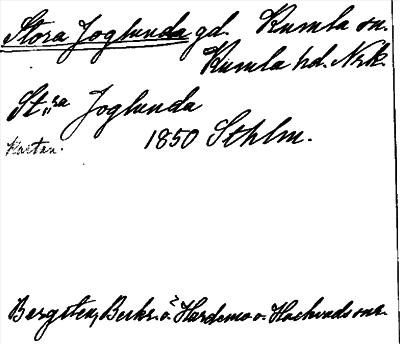 Stora Joglunda gd. Kumla sn.
Kumla hd. Nrk.
St:ra Joglunda
Kartan. 1850 Sthlm.
Bergsten, Beskr. ö. Hardemo o. Hackvads snr.